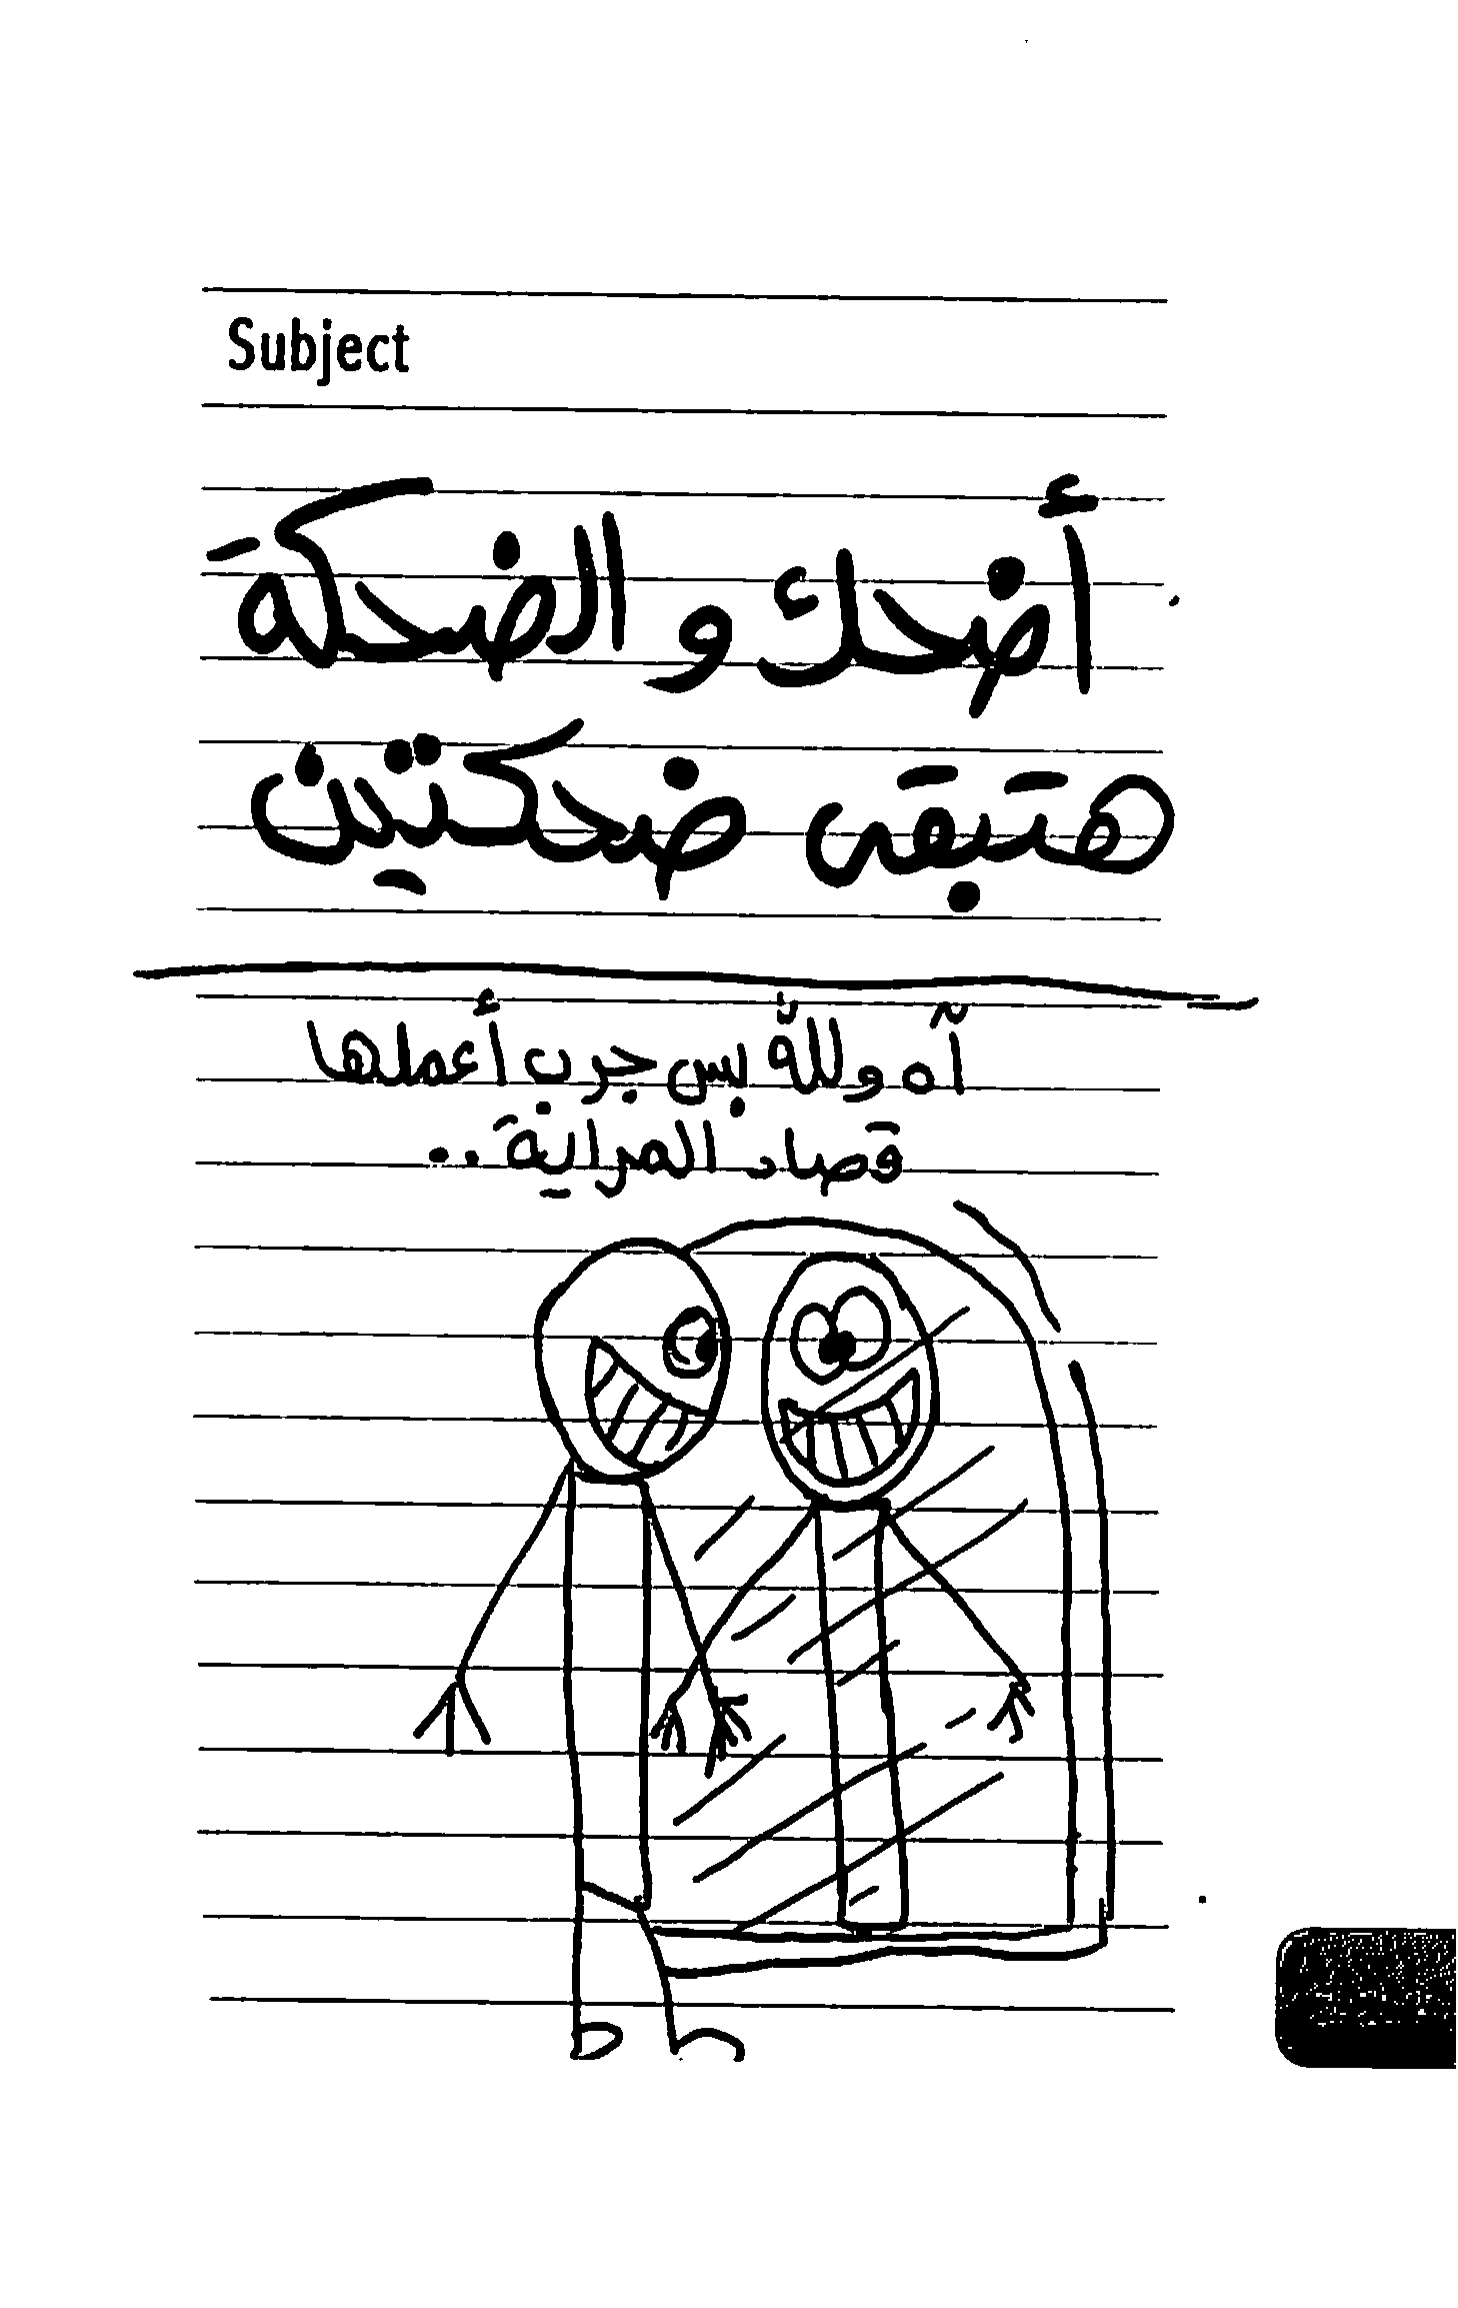 Subject
أضحك و الضحكة
هتبقى ضحكتين
آه وللّه بس جرب أعملها
قصاد المراية..